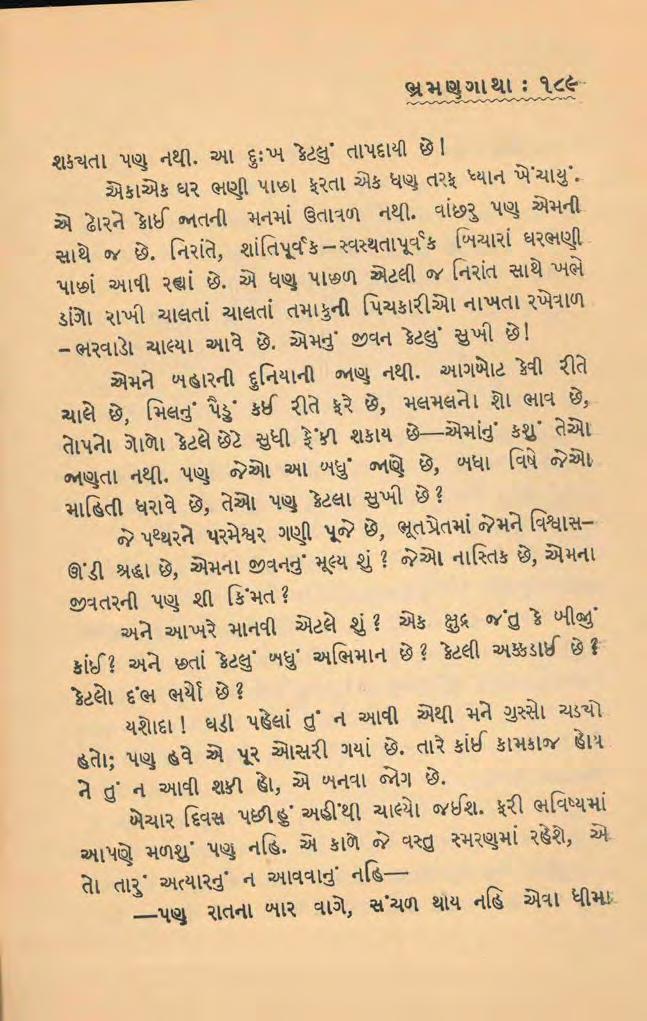 ભ્રમણગાથા : ૧૮૯
શક્યતા પણ નથી. આ દુઃખ કેટલું તાપદાયી છે!
એકાએક ઘર ભણી પાછા ફરતા એક ધણ તરફ ધ્યાન ખેંચાયું.
એ ઢોરને કોઈ જાતની મનમાં ઉતાવળ નથી. વાંછરુ પણ એમની
સાથે જ છે. નિરાંતે, શાંતિપૂર્વક–સ્વસ્થતાપૂર્વક બિચારાં ઘરભણી
પાછાં આવી રહ્યાં છે. એ ધણ પાછળ એટલી જ નિરાંત સાથે ખભે
ડાંગો રાખી ચાલતાં ચાલતાં તમાકુની પિચકારીઓ નાખતા રખેવાળ
–ભરવાડો ચાલ્યા આવે છે. એમનું જીવન કેટલું સુખી છે!
એમને બહારની દુનિયાની જાણ નથી. આગબોટ કેવી રીતે
ચાલે છે, મિલનું પૈડું કઈ રીતે ફરે છે, મલમલનો શો ભાવ છે,
તોપનો ગોળો કેટલે છેટે સુધી ફેંકી શકાય છે—એમાંનું કશું તેઓ
જાણતા નથી. પણ જેઓ આ બધું જાણે છે, બધા વિષે જેઓ
માહિતી ધરાવે છે, તેઓ પણ કેટલા સુખી છે?
જે પથ્થરને પરમેશ્વર ગણી પૂજે છે, ભૂતપ્રેતમાં જેમને વિશ્વાસ–
ઊંડી શ્રદ્ધા છે, એમના જીવનનું મૂલ્ય શું? જેઓ નાસ્તિક છે, એમના
જીવતરની પણ શી કિંમત?
અને આખરે માનવી એટલે શું? એક ક્ષુદ્ર જંતુ કે બીજું
કાંઈ? અને છતાં કેટલું બધું અભિમાન છે? કેટલી અક્કડાઈ છે?
કેટલો દંભ ભર્યો છે?
યશોદા! ઘડી પહેલાં તું ન આવી એથી મને ગુસ્સો ચડ્યો
હતો; પણ હવે એ પૂર ઓસરી ગયાં છે. તારે કાંઈ કામકાજ હોય
ને તું ન આવી શકી હો, એ બનવા જોગ છે.
બેચાર દિવસ પછી હું અહીંથી ચાલ્યો જઈશ. ફરી ભવિષ્યમાં
આપણે મળશું પણ નહિ. એ કાળે જે વસ્તુ સ્મરણમાં રહેશે, એ
તો તારું અત્યારનું ન આવવાનું નહિ—
—પણ રાતના બાર વાગે, સંચળ થાય નહિ એવા ધીમા